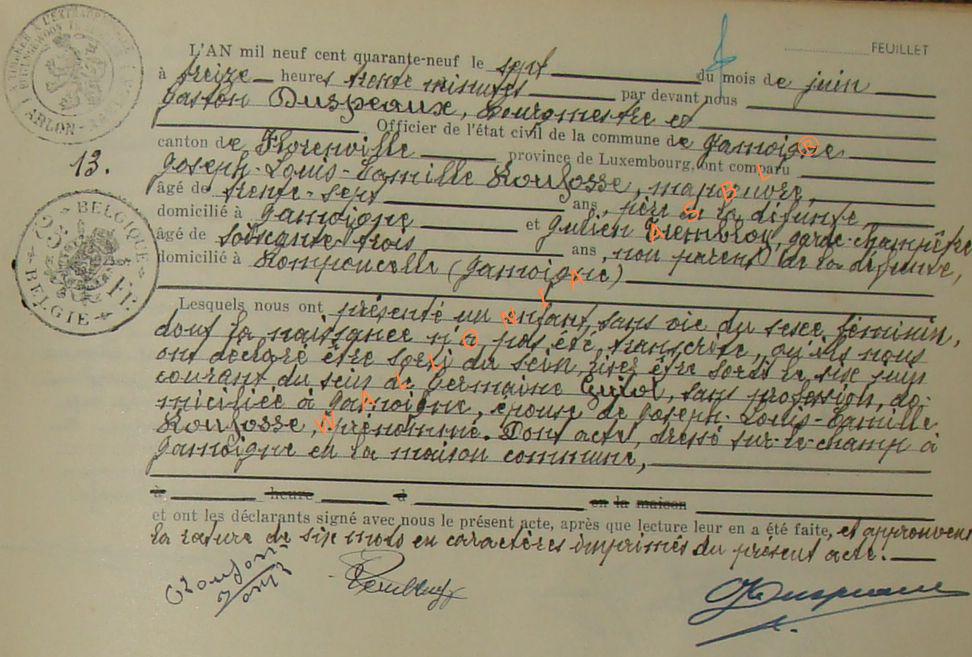 FEUILLET
L'AN mil neuf cent quarante-neuf le sept du mois de juin
à treize heures trente minutes par devant nous
Gaston Duspeaux, bourgmestre et
Officier de l'état civil de la commune de Jamoigne
canton de Florenville province de Luxembourg, ont comparu
13.
Joseph-Louis-Camille Roufosse, manoeuvre,
âgé de trente-sept ans, père de la défunte
domicilié à Jamoigne et Julien Trembloy, garde-champêtre
âgé de soixante-trois ans, non parent de la défunte,
domicilié à Romponcelle (Jamoigne)
Lesquels nous ont présenté un enfant sans vie du sexe féminin,
dont la naissance n'a pas été transcrite, qu'ils nous
ont déclaré être sorti du sein, lisez être sorti le six juin
courant du sein de Germaine Guiot, sans profession, do-
miciliée à Jamoigne, épouse de Joseph-Louis-Camille
Roufosse, prénommé. Dont acte, dressé sur-le-champ à
Jamoigne en la maison commune,
à heure à en la maison
et ont les déclarants signé avec nous le présent acte, après que lecture leur en a été faite, et approuvent
la rature de six mots en caractères imprimés du présent acte.
BELGIQUE
BELGIE
ARLON
WALLONIA ASBL ®